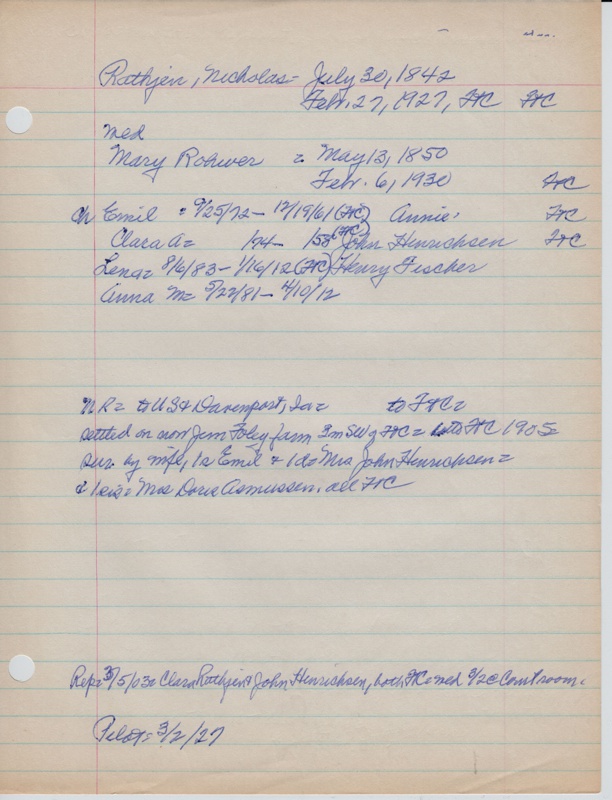 Rathjen, Nicholas = July 30, 1842
Feb. 27, 1927, FtC FtC
med
Mary Rohwer = May 13, 1850
Feb. 6, 1930 FtC
Ch Emil = 9/25/72 - 12/19/61 (FtC) Annie, FtC
Clara A = /94 - /58 (FtC) John Henrichsen FtC
Lena = 8/6/83 - 1/16/12 (FtC) Henry Fischer
Anna M = 5/22/81 - 4/10/12
NR = to US & Davenport, Ia = to FtC =
settled on now Jim Foley farm 3m SW of FtC = to FtC 1905
sur. by wife, 1s Emil + 1d = Mrs John Henrichsen =
& 1 sis = Mrs Doris Asmussen, all FtC
Rep = 3/5/03 = Clara Rathjen & John Henrichsen, both FtC med 3/2 @ Court room.
Pilot = 3/2/27